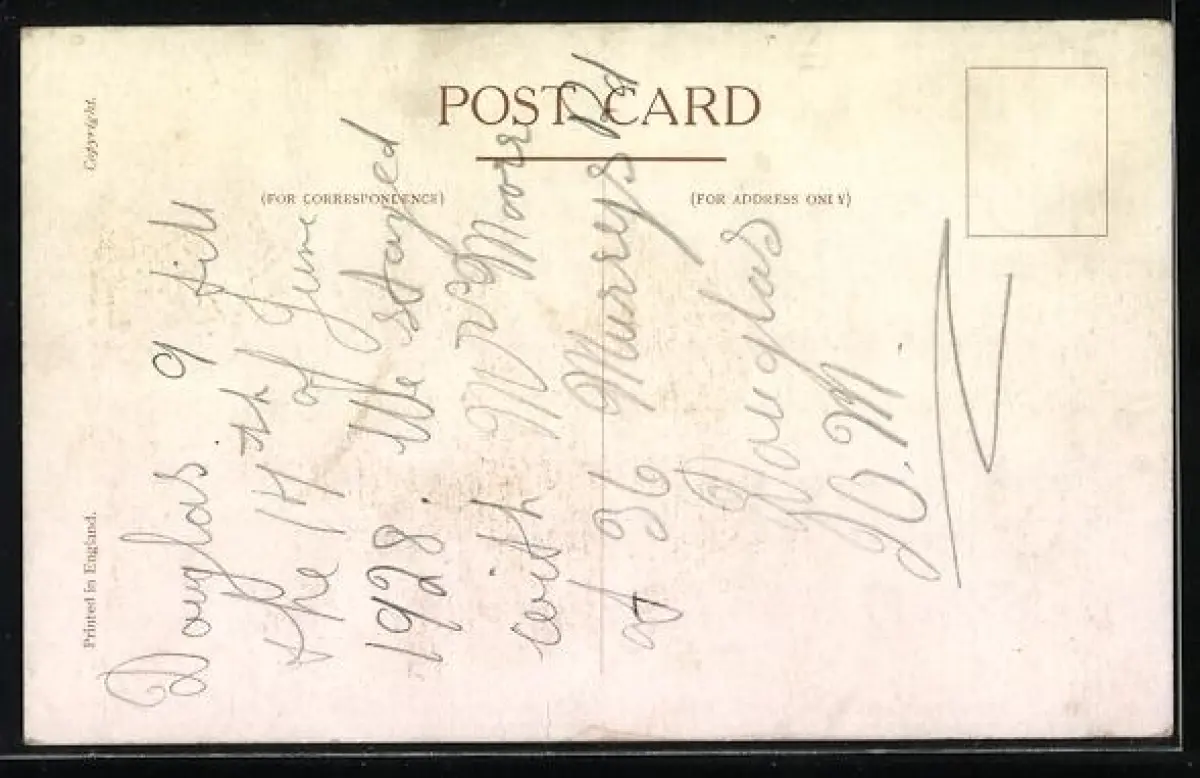 POST CARD
(FOR CORRESPONDENCE)
(FOR ADDRESS ONLY)
Copyright.
Printed in England.
Douglas 9 till
the 14 th of June
1928. We stayed
with Mr Moore
at 36 Murrys Rd
Douglas
I.O.M.